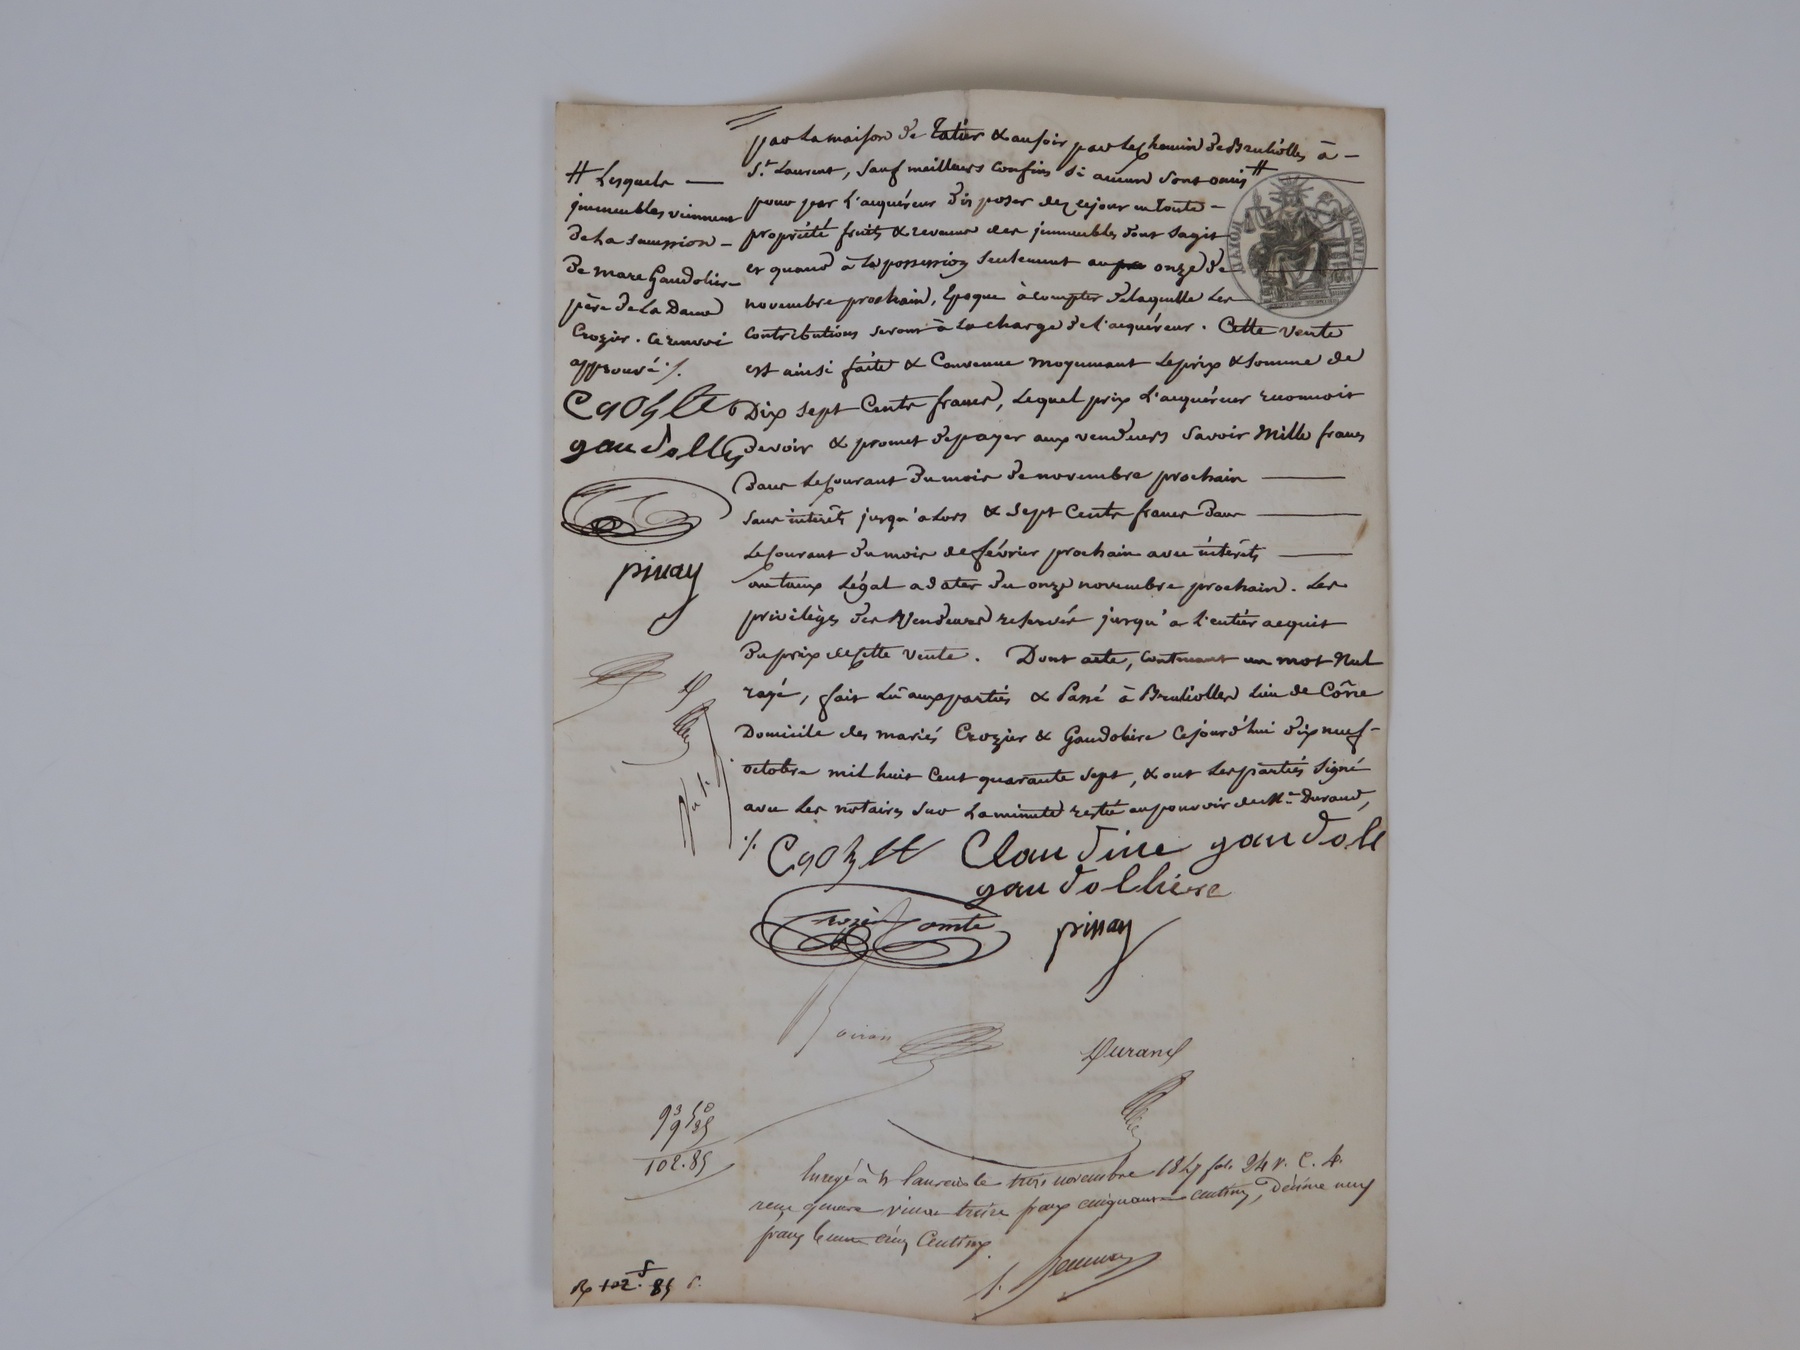 par la maison de Tatier & au soir par le chemin de Brullioles à
St. Laurent, sauf meilleurs confins si aucuns sont omis #
pour par l'acquéreur disposer dez cejour en toute
propriété fruits & revenus des immeubles dont sagit
et quand à la possession seulement au onze de
novembre prochain, Epoque à compter delaquelle les
contributions seront à la charge de l'acquéreur. Cette vente
est ainsi faite & Convenue moyennant le prix & somme de
Dix sept Cents francs, lequel prix l'acquéreur reconnoit
devoir & promet depayer aux vendeurs savoir Mille francs
dans le courant du mois de novembre prochain
sans intérêts jusqu'alors & sept Cents francs dans
le courant du mois de février prochain avec intérêts
au taux légal adater du onze novembre prochain. Les
privilèges des Vendeurs réservés jusqu'a l'entier acquit
du prix decette vente. Dont acte, contenant un mot Nul
rayé, fait lu aux parties & Passé à Brullioles lieu de Côrie
Domicile des mariés Crozier & Gaudolière cejourd'hui dix neuf
octobre mil huit Cent quarante sept, & ont les parties signé
avec les notaires sur la minute restée au pouvoir de Me Durand,
# Lesquels
immeubles viennent
de la succession
de marc Gaudolier
père de la Dame
Crozier. Ce renvoi
approuvé ./.
gaudolli
pinay
Claudine gaudoli
gaudolliere
pinay
Durand
93 50
9 35
102.85
Enregé à St Laurent le trois novembre 1847 fol. 24 v. C. 4.
reçu quatre vingt treize francs cinquante centimes, décime neuf
francs trente cinq Centimes.
102. 85